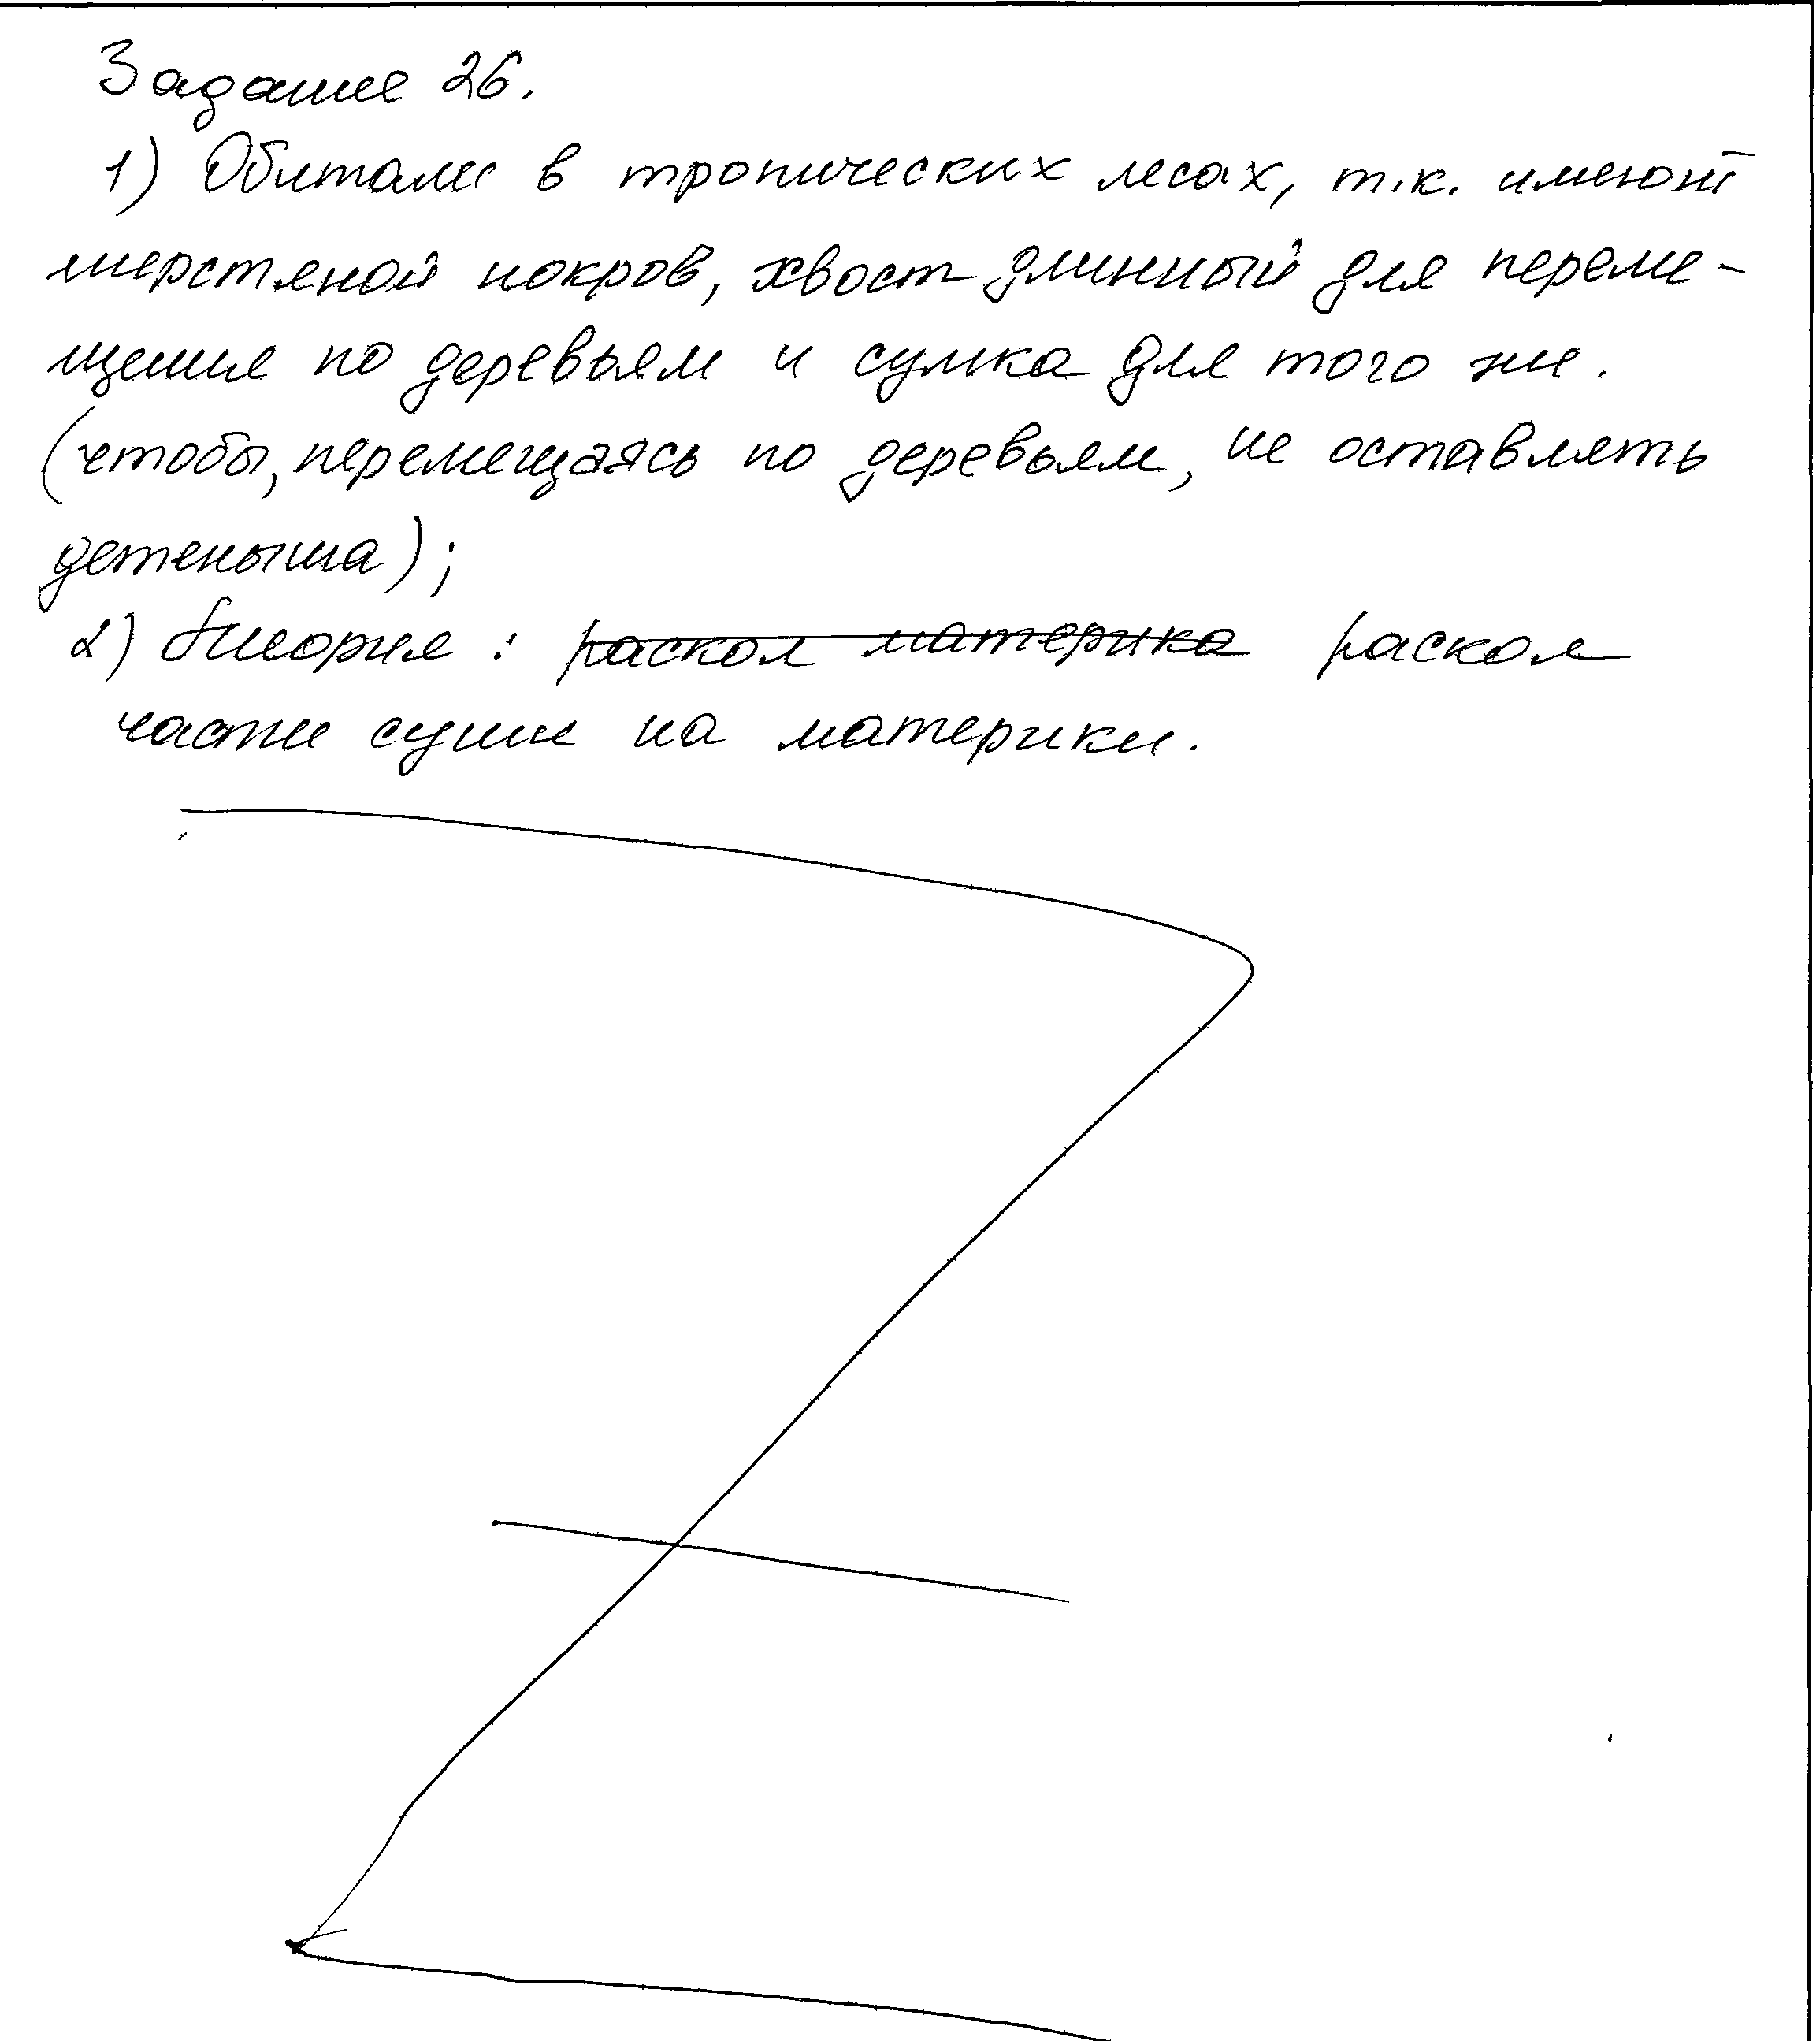 Задание 26.
1) Обитали в тропических лесах, т.к. имеют
шерстяной покров, хвост длинный для переме-
щения по деревьям и сумка для того же.
(чтобы, перемещаясь по деревьям, не оставлять
детеныша);
2) Теория: ~~раскол материка~~ раскол
части суши на материки.